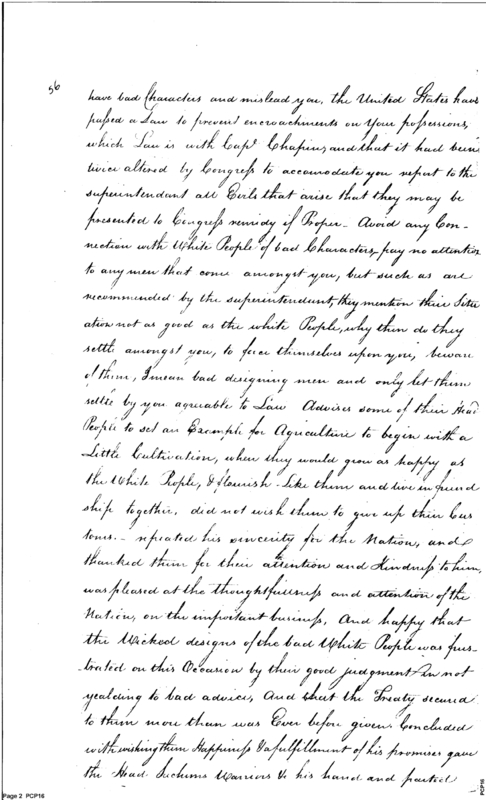 56
have bad Characters and mislead you, the United States have
passed a Law to prevent encroachments on Your possessions,
which Law is with Capt Chapin, and that it had been
twice altered by Congress to accomodate you report to the
superintendant all Evils that arise that they may be
presented to Congress remidy if Proper - Avoid any Con-
nection with White People of bad Characters, pay no attention
to any men that come amongst you, but such as are
recommended by the superintendent, they mention their Situ
ation not as good as the white People, why then do they
settle amongst you, to force themselves upon you, beware
of them, I mean bad designing men and only let them
settle by you agreeable to Law Advises some of their Head
People to set an Example for Agriculture to begin with a
Little Cultivation, when they would grow as happy as
the White People, & flourish - Like them and live in friend
ship together, did not wish them to give up their Cus
toms. - repeated his sincerity for the Nation, and
thanked them for their attention and Kindness to him,
was pleased at the thoughtfullness and attention of the
Nation, on the important business, And happy that
the Wicked designs of the bad White People was frus-
trated on this Occasion by their good judgment in not
yealding to bad advice, And that the Treaty secured
to them more than was Ever before given. Concluded
with wishing them Happiness & a fulfillment of his promises gave
the Head Sachems Warriors & his hand and parted
Page 2 PCP16
PCP16